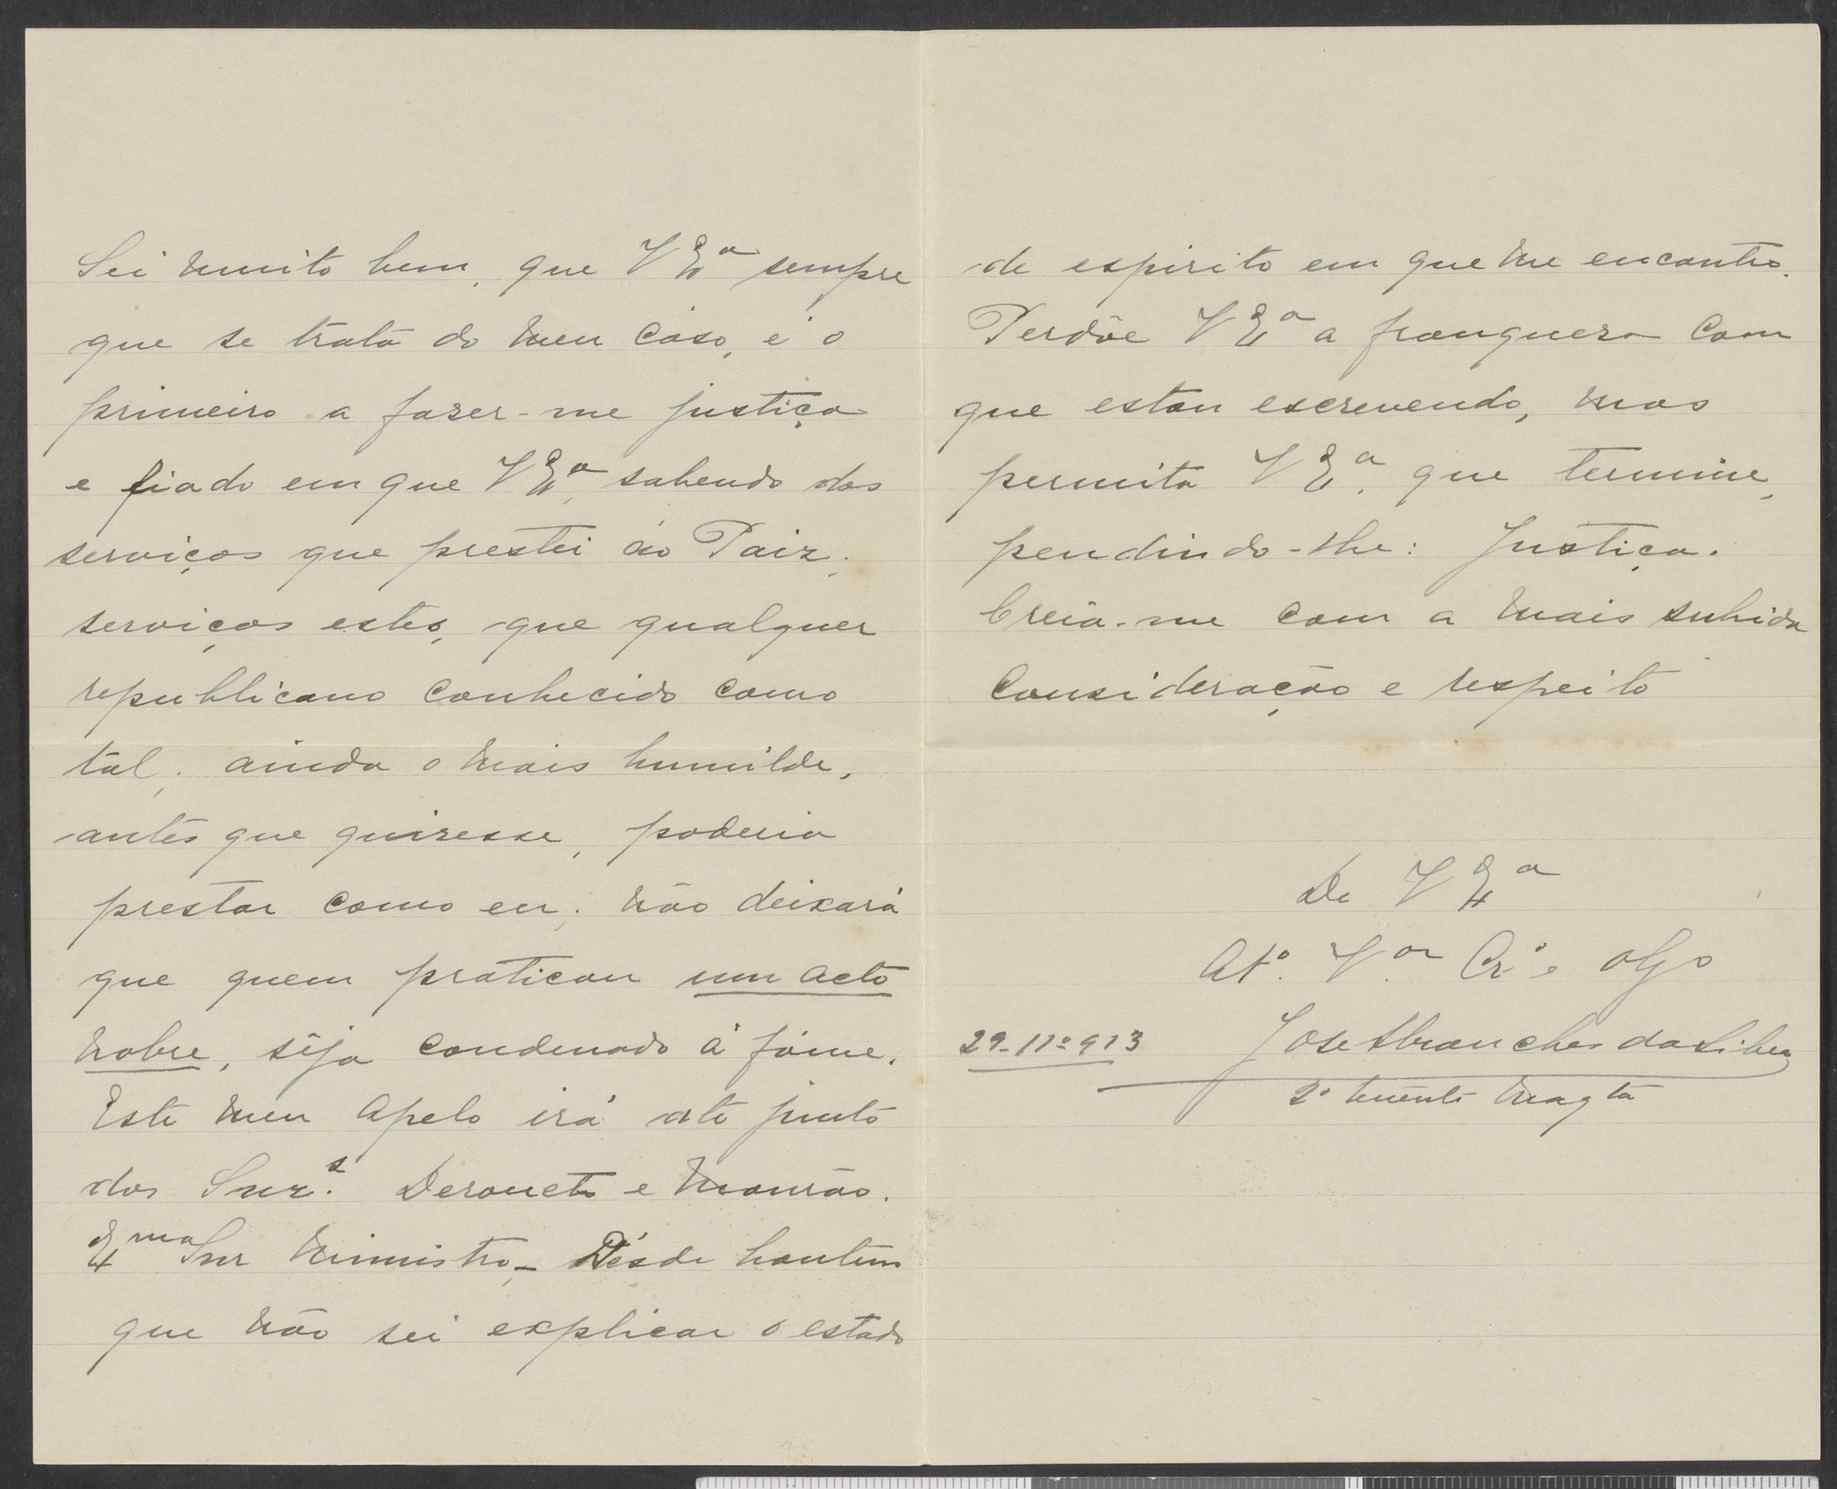 Sei muito bem, que V Exª sempre
que se trata do meu caso, é o
primeiro a fazer-me justiça
e fiado em que V Exª, sabendo dos
serviços que prestei ao Paiz,
serviços estes, que qualquer
republicano conhecido como
tal, ainda o mais humilde,
antes que quizesse, poderia
prestar como eu, não deixará
que quem praticou um acto
nobre, seja condenado á fóme.
Este meu apelo irá até junto
dos Snr.s Derouet e Mourão.
Exmo Snr Ministro - Désde hontem
que não sei explicar o estado
de espirito em que me encontro.
Perdõe V Exª a franqueza com
que estou escrevendo, mas
permita V Exª, que termine,
pendindo-lhe: Justiça.
Creia-me com a mais subida
consideração e respeito
De V Exª
Atº. V.or Crº e Obgo
29-11º-913
José Abranches da Silva
2º tenente maqta